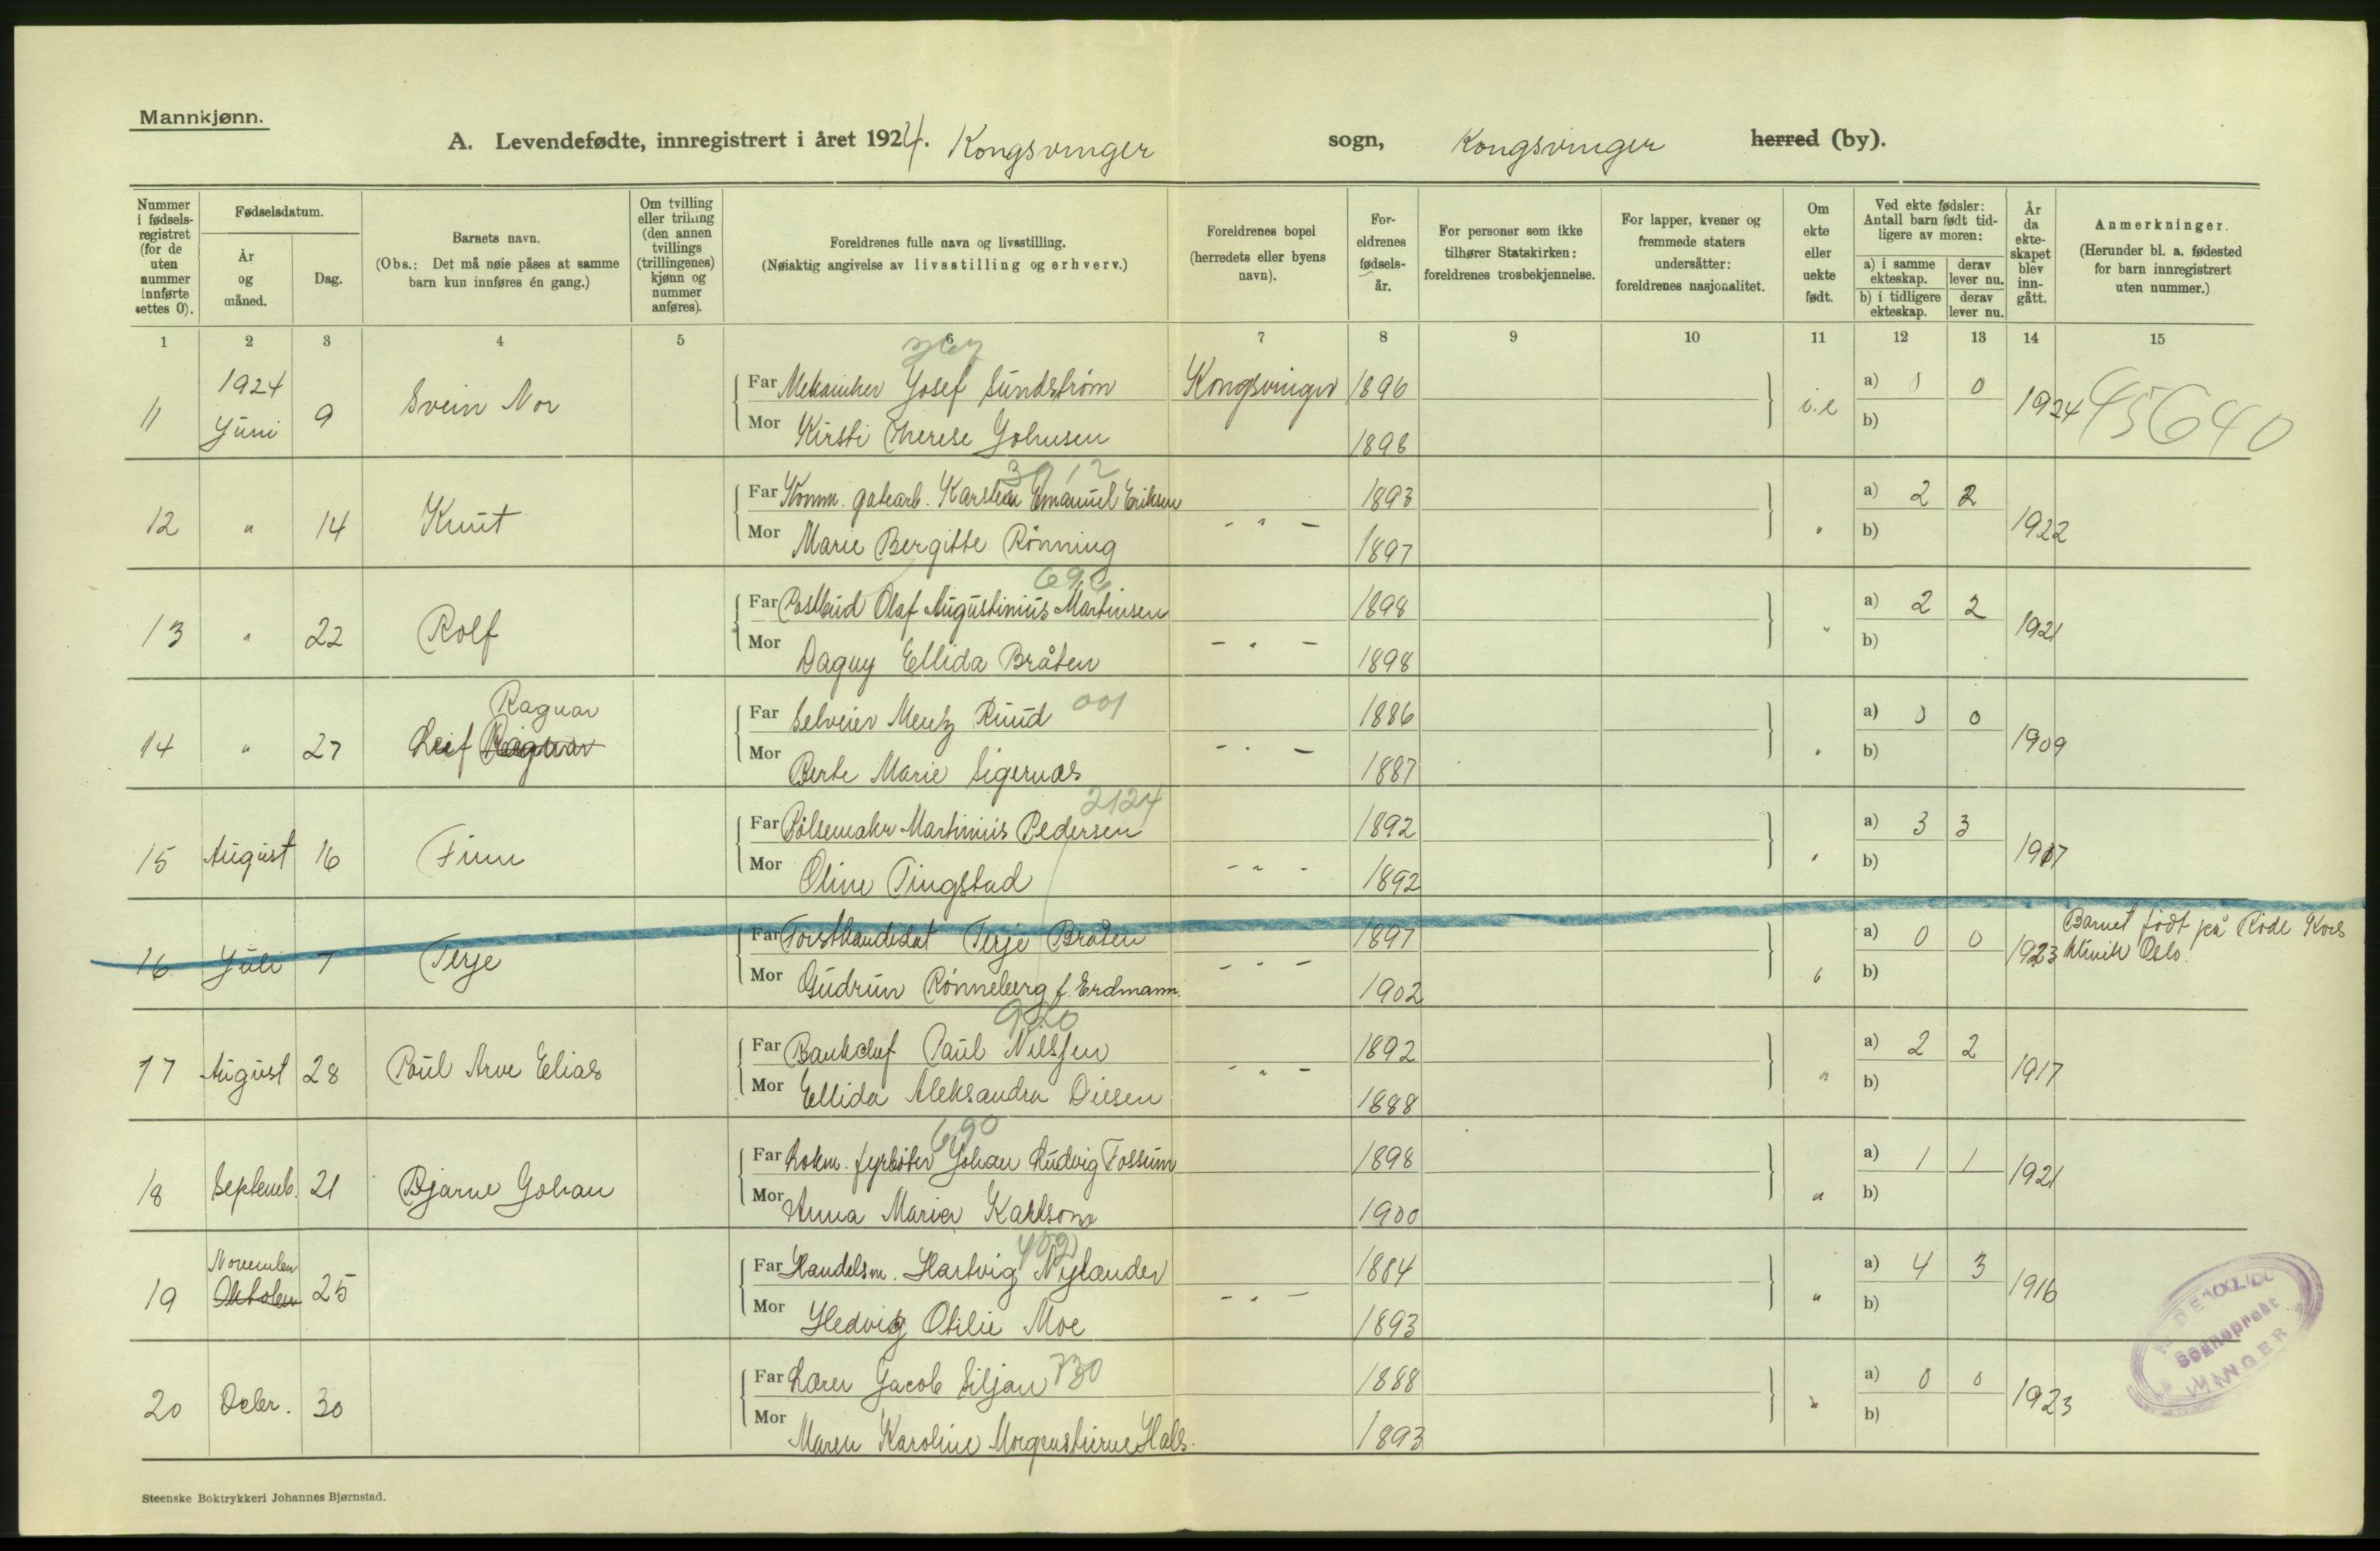 Mannkjønn.
A. Levendefødte, innregistrert i året 1924. Kongsvinger sogn, Kongsvinger herred (by).
Nummer i fødselsregistret (for de uten nummer innførte settes 0).
Fødselsdatum.
År og måned.
Dag.
Barnets navn.
(Obs.: Det må nøie påses at samme barn kun innføres én gang.)
Om tvilling eller trilling (den annen tvillings (trillingenes) kjønn og nummer anføres).
Foreldrenes fulle navn og livsstilling.
(Nøiaktig angivelse av livsstilling og erhverv.)
Foreldrenes bopel (herredets eller byens navn).
Foreldrenes fødselsår.
For personer som ikke tilhører Statskirken: foreldrenes trosbekjennelse.
For lapper, kvener og fremmede staters undersåtter: foreldrenes nasjonalitet.
Om ekte eller uekte født.
Ved ekte fødsler: Antall barn født tidligere av moren:
a) i samme ekteskap. derav lever nu.
b) i tidligere ekteskap. derav lever nu.
År da ekteskapet blev inngått.
Anmerkninger.
(Herunder bl. a. fødested for barn innregistrert uten nummer.)
1 2 3 4 5 6 7 8 9 10 11 12 13 14 15
11 1924 Juni 9 Svein Nor
Far Mekaniker Josef Sundstrøm Kongsvinger 1896 a) 0 0
Mor Kirsti Therese Johnsen 1898 b)
1924 45640
3912
12 " 14 Knut
Far Komm. gatearb. Karsten Emanuel Eriksen 1893 a) 2 2
Mor Marie Bergitte Rønning - " - 1897 " b) 1922
13 " 22 Rolf
Far Postbud Olaf Augustinius Martinsen 1898 a) 2 2
Mor Dagny Ellida Bråten - " - 1898 " b) 1921
14 " 27 Leif Ragnar Ragnar
Far Selveier Mentz Ruud 001 1886 a) 0 0
Mor Berte Marie Sigernes - " - 1887 " b) 1909
2124
15 August 16 Finn
Far Pølsemaker Martinius Pedersen 1892 a) 3 3
Mor Oline Tingstad - " - 1892 " b) 1917
16 Juli 7 Terje
Far Forstkandidat Terje Bråten 1897 a) 0 0
Mor Gudrun Rønneberg f. Erdmann. - " - 1902 " b) 1923
Barnet født på Røde Kors Klinik Oslo.
920
17 August 28 Poul Arve Elias
Far Bankchef Paul Nilssen 1892 a) 2 2
Mor Ellida Aleksandra Diesen - " - 1888 " b) 1917
690
18 Septemb. 21 Bjarne Johan
Far Lokm. fyrbøter Johan Ludvig Fossum 1898 a) 1 1
Mor Anna Maria Karlsson 1900 " b) 1921
19 November Oktober 25
Far Handelsm. Hartvig Nylander 1884 a) 4 3
Mor Hedvig Otilie Moe - " - 1893 " b) 1916
20 Decbr. 30
Far Lærer Jacob Siljan 730 1888 a) 0 0
Mor Maren Karoline Morgenstierne Hals. 1893 " b) 1923
Sogneprest
Steenske Boktrykkeri Johannes Bjørnstad.